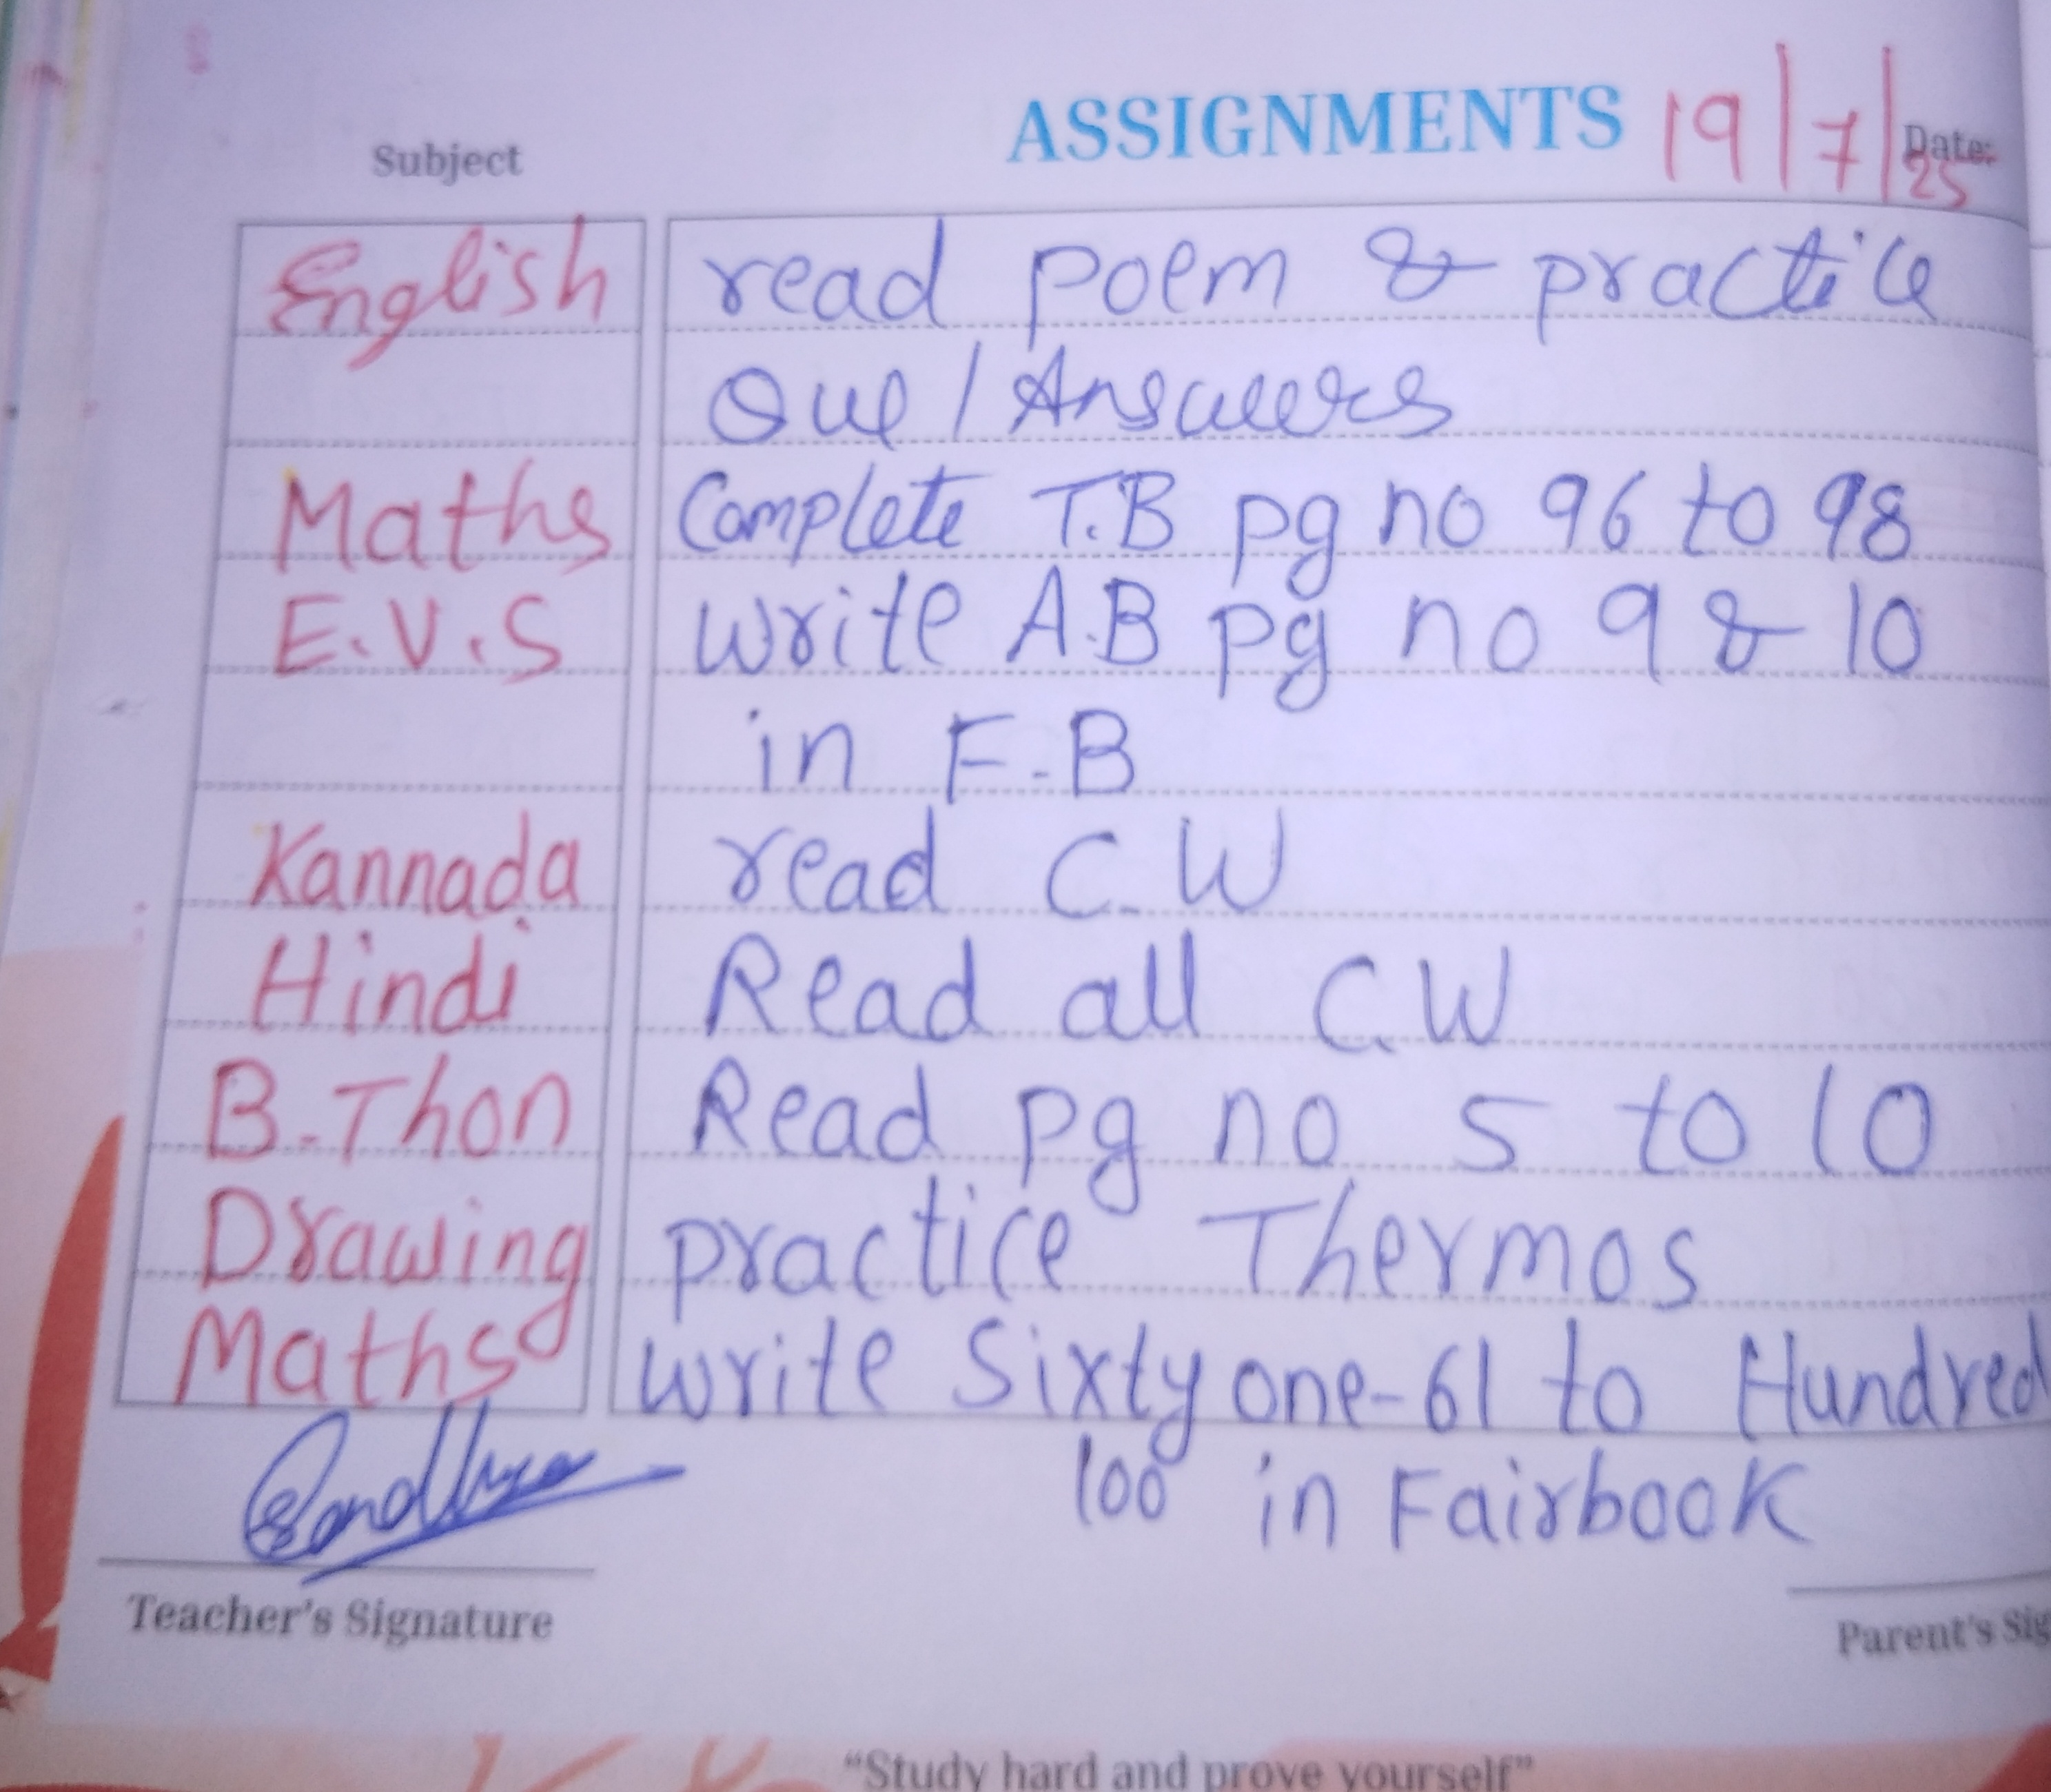 ASSIGNMENTS 19/7/25
Subject Date:
English read poem & practice
Que / Answers
Maths Complete T.B pg no 96 to 98
E.V.S Write A.B pg no 9 & 10
in F.B
Kannada read C.W
Hindi Read all C.W
B.Thon Read pg no 5 to 10
Drawing practice Thermos
Maths write Sixty one-61 to Hundred
100 in Fairbook
Sandhya
Teacher's Signature Parent's Sig
"Study hard and prove yourself"